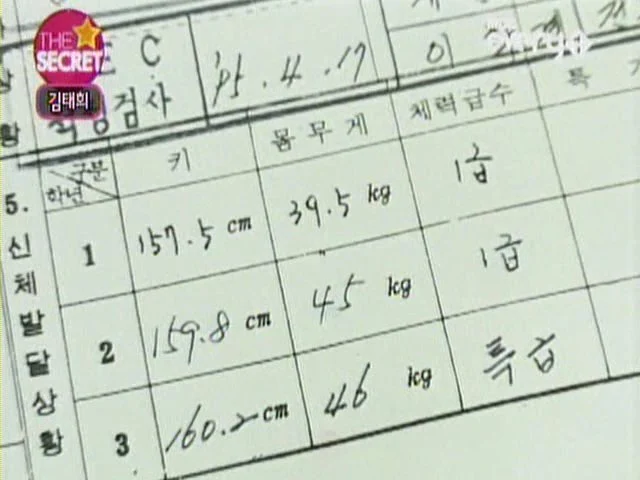 THE
SECRET
김태희
황
C
적성검사
'95.4.17
학년 구분
키
몸무게
체력급수
특
5.
신체발달상황
1
157.5 cm
39.5 kg
1급
2
159.8 cm
45 kg
1급
3
160.2 cm
46 kg
특급